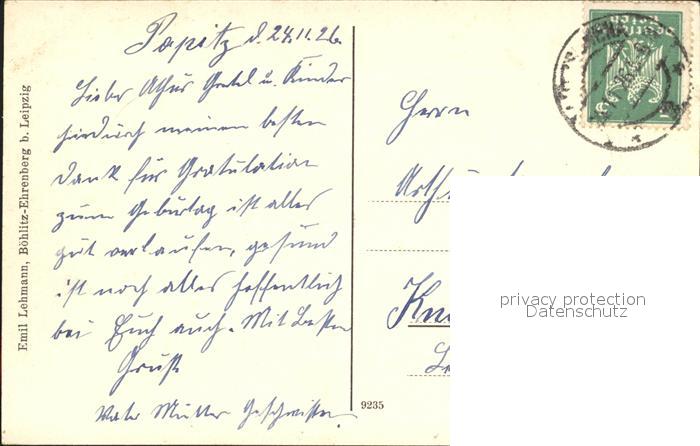 Papitz d. 24.11.26.
Lieber Athur Gretel u. Kinder
hirdurch meinen besten
Dank für Gratulation
zum Geburtag ist alles
gut verlaufen, gesund
ist noch alles hoffentlich
bei Euch auch. Mit besten
Gruß
Vater Mutter Geschwister.
Herrn
Emil Lehmann, Böhlitz-Ehrenberg b. Leipzig
9235
privacy protection
Datenschutz